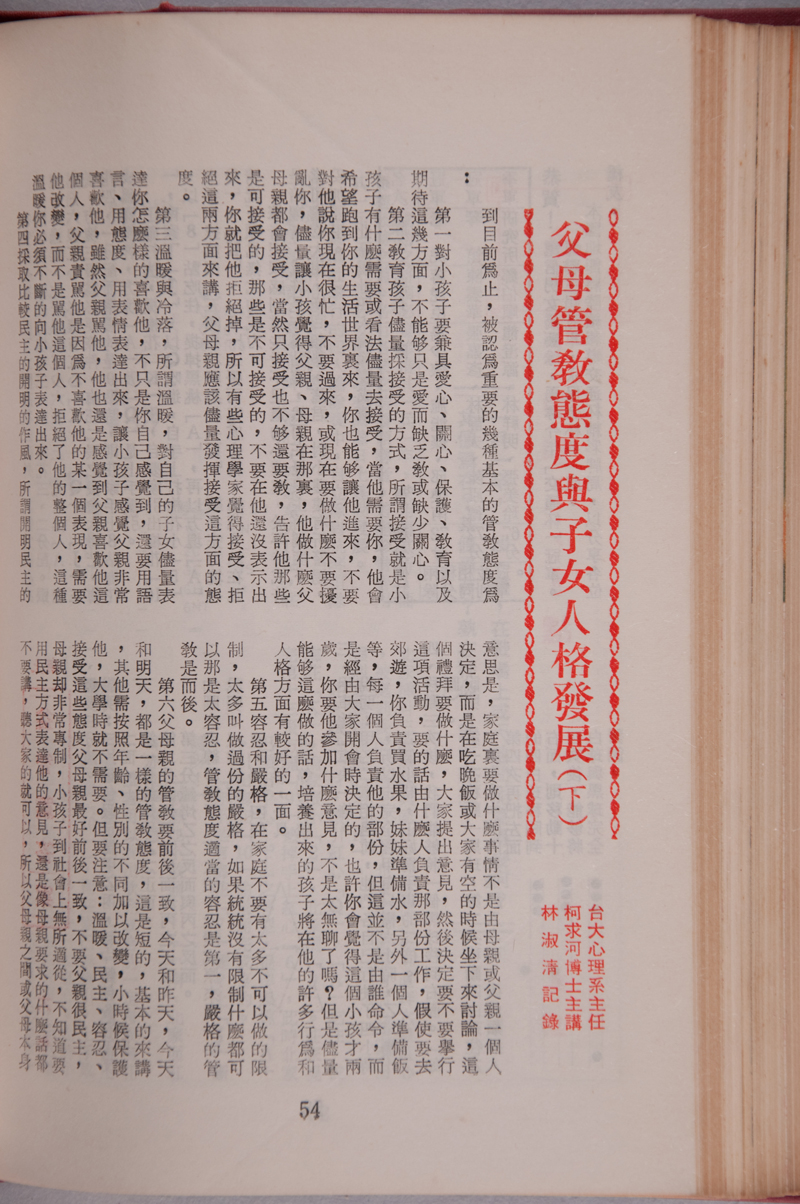 父母管教態度與子女人格發展(下)
台大心理系主任
柯求河博士主講
林淑清記錄
到目前爲止，被認爲重要的幾種基本的管教態度爲
：
第一對小孩子要兼具愛心、關心、保護、教育以及
期待這幾方面，不能够只是愛而缺乏教或缺少關心。
第二教育孩子儘量採接受的方式，所謂接受就是小
孩子有什麼需要或看法儘量去接受，當他需要你，他會
希望跑到你的生活世界裏來，你也能够讓他進來，不要
對他說你現在很忙，不要過來，或現在要做什麼不要擾
亂你，儘量讓小孩覺得父親、母親在那裏，他做什麼父
母親都會接受，當然只接受也不够還要教，告許他那些
是可接受的，那些是不可接受的，不要在他還沒表示出
來，你就把他拒絕掉，所以有些心理學家覺得接受、拒
絕這兩方面來講，父母親應該儘量發揮接受這方面的態
度。
第三溫暖與冷落，所謂溫暖，對自己的子女儘量表
達你怎麼樣的喜歡他，不只是你自己感覺到，還要用語
言、用態度、用表情表達出來，讓小孩子感覺父親非常
喜歡他，雖然父親罵他，他也還是感覺到父親喜歡他這
個人，父親責罵他是因爲不喜歡他的某一個表現，需要
他改變，而不是罵他這個人，拒絕了他的整個人，這種
溫暖你必須不斷的向小孩子表達出來。
第四採取比較民主的開明的作風，所謂開明民主的
意思是，家庭裏要做什麼事情不是由母親或父親一個人
決定，而是在吃晚飯或大家有空的時候坐下來討論，這
個禮拜要做什麼，大家提出意見，然後決定要不要擧行
這項活動，要的話由什麼人負責那部份工作，假使要去
郊遊，你負責買水果，妹妹準備水，另外一個人準備飯
等，每一個人負責他的部份，但這並不是由誰命令，而
是經由大家開會時決定的，也許你會覺得這個小孩才兩
歲，你要他參加什麼意見，不是太無聊了嗎？但是儘量
能够這麼做的話，培養出來的孩子將在他的許多行爲和
人格方面有較好的一面。
第五容忍和嚴格，在家庭不要有太多不可以做的限
制，太多叫做過份的嚴格，如果統統沒有限制什麼都可
以那是太容忍，管教態度適當的容忍是第一，嚴格的管
教是而後。
第六父母親的管教要前後一致，今天和昨天，今天
和明天，都是一樣的管教態度，這是短的，基本的來講
，其他需按照年齡、性別的不同加以改變，小時候保護
他，大學時就不需要。但要注意：溫暖、民主、容忍、
接受這些態度父母親最好前後一致，不要父親很民主，
母親却非常專制，小孩子到社會上無所適從，不知道要
用民主方式表達他的意見，還是像母親要求的什麼話都
不要講，聽大家的就可以，所以父母親之間或父母本身
54